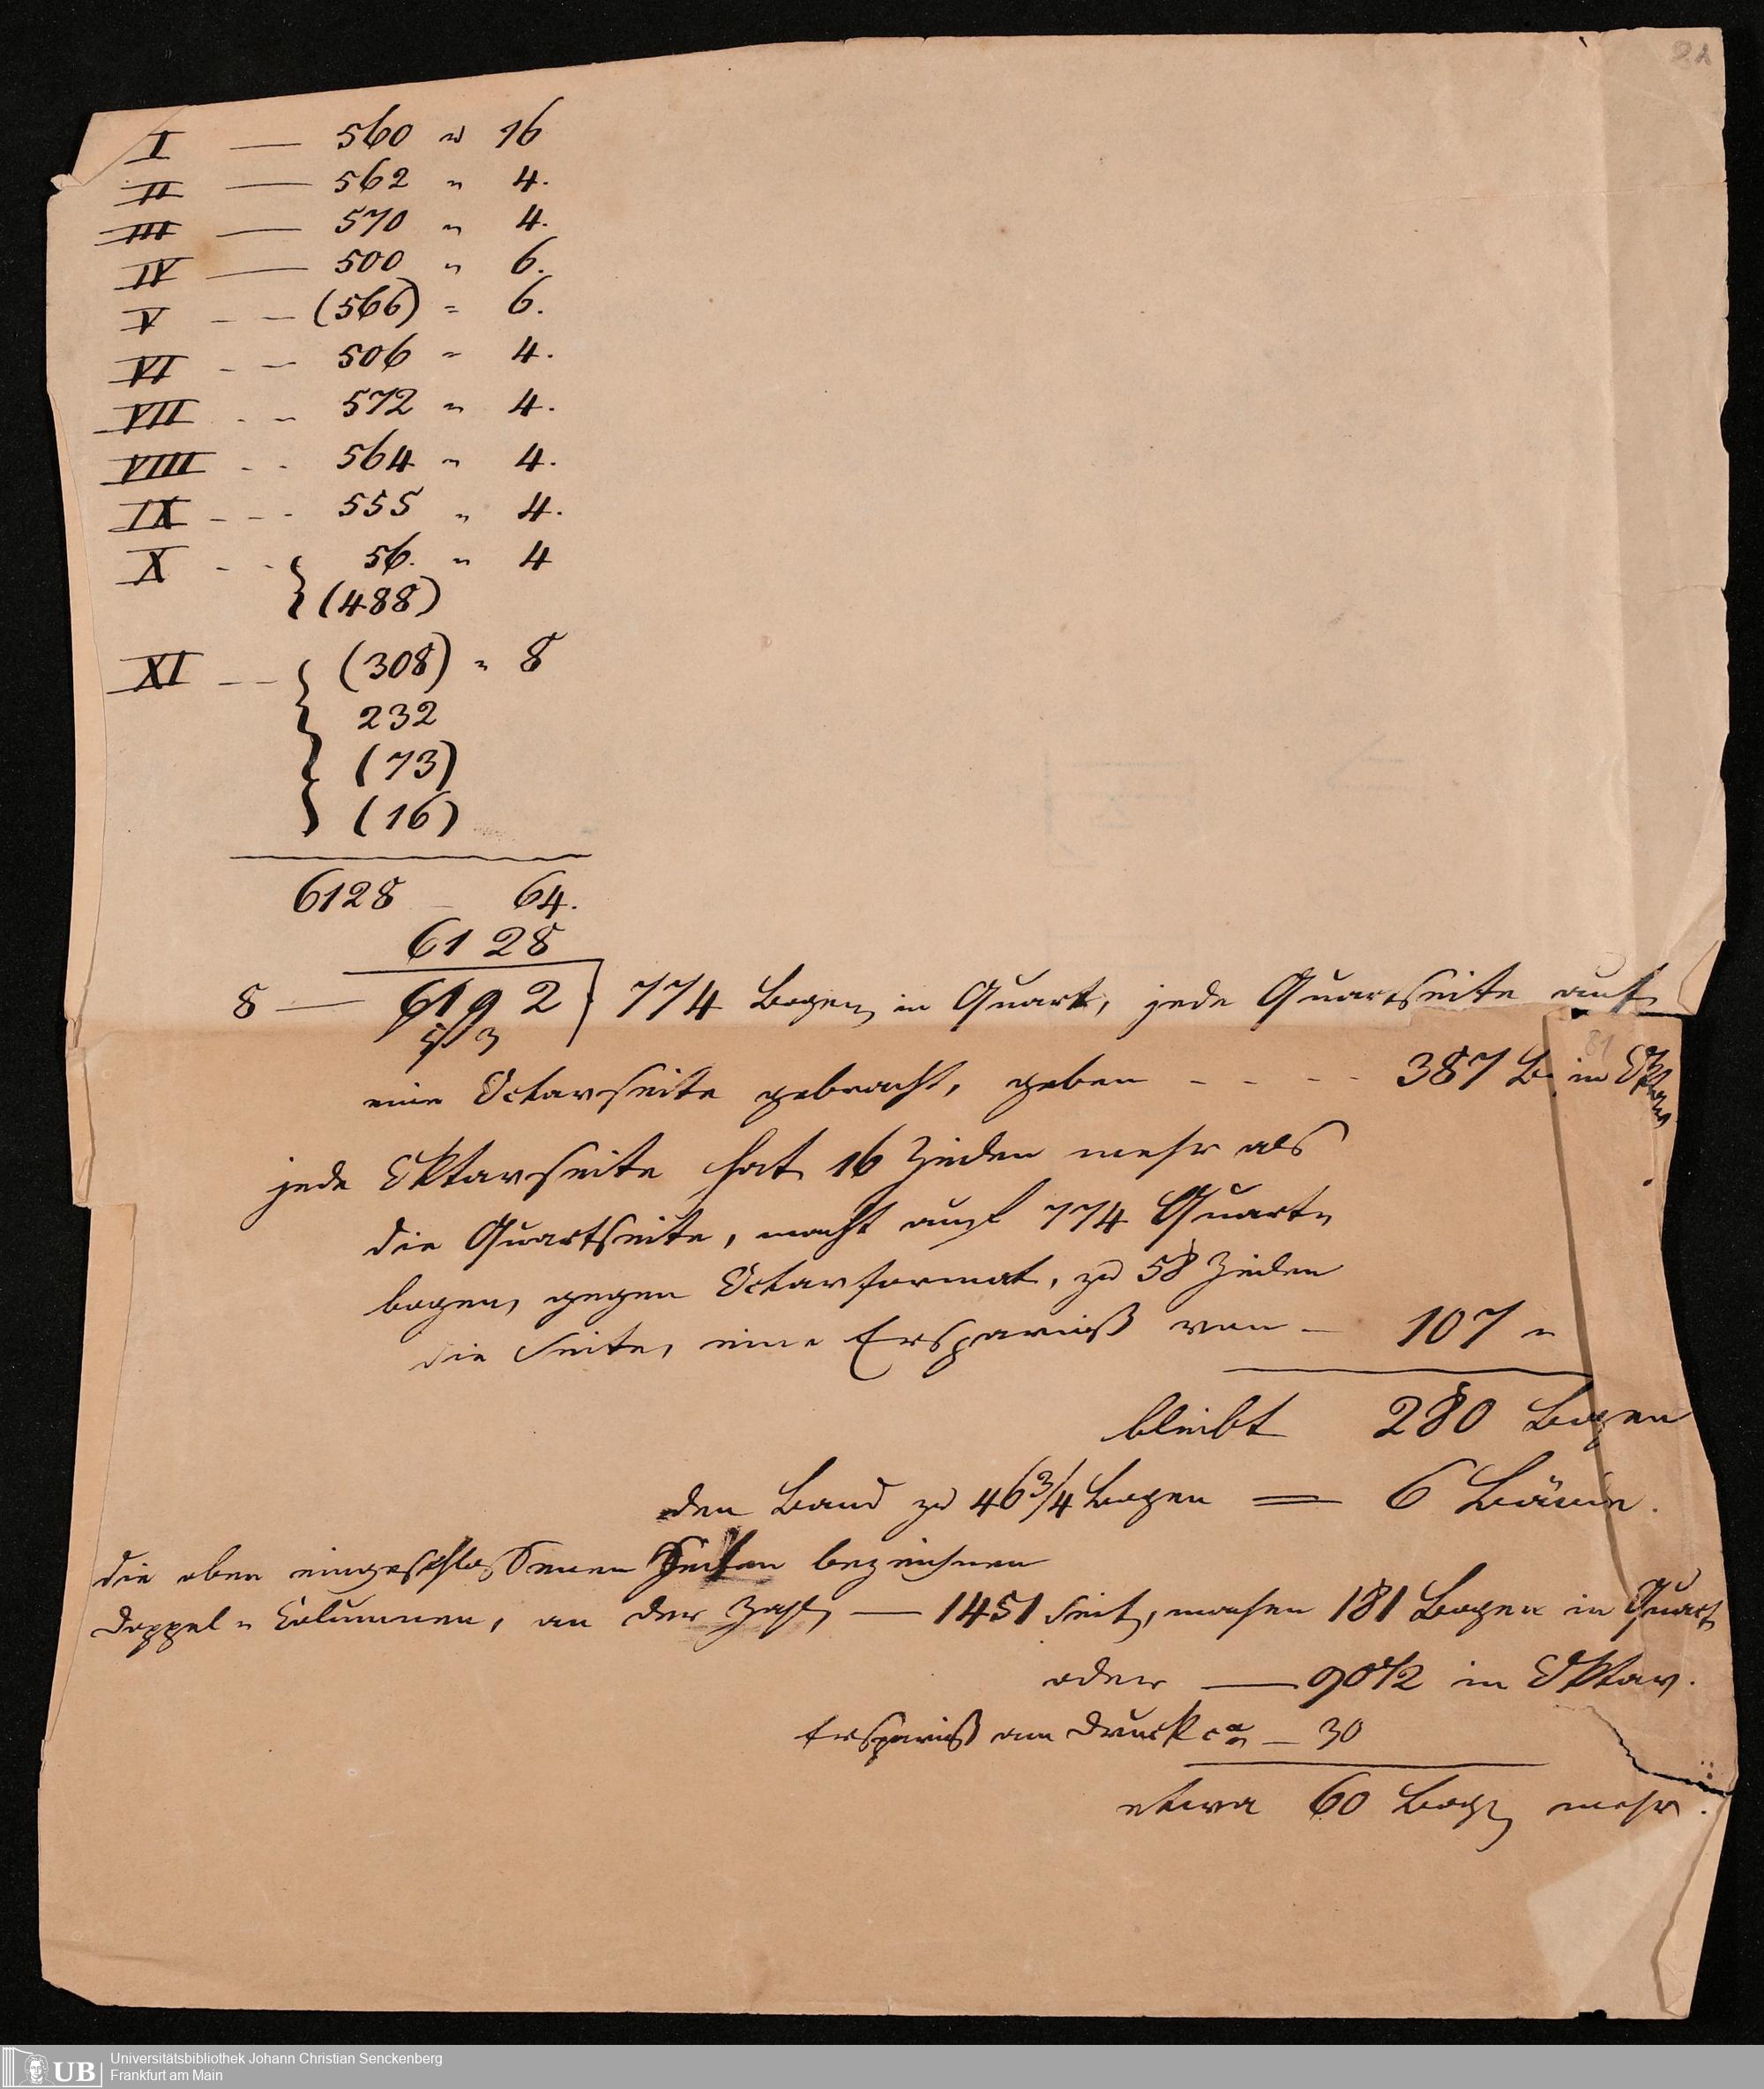 81
I — 560 u 16
II — 562 " 4.
III — 570 " 4.
IV — 500 " 6.
V - — (566) " 6.
VI - — 506 " 4.
VII - - 572 " 4.
VIII - - 564 " 4.
IX - - - 555 " 4.
X - - 56. " 4
(488)
XI - — (308) " 8
232
(73)
(16)
6128 - 64.
6128
8 — 6192 } 774 Bogen in Quart, jede Quartseite auf
5 3
81
eine Octavseite gebracht, geben - - - - 387 B. in Oktav
jede Oktavseite hat 16 Zeilen mehr als
die Quartseite, macht auf 774 Quart-
bogen, gegen Octavformat, zu 58 Zeilen
die Seite, eine Ersparniß von — 107 "
bleibt 280 Bogen
den Band zu 46 3/4 Bogen = 6 Bände.
die oben eingeschlossenen Seiten bezeichnen
Doppel-Columnen, an der Zahl — 1451 Seit, machen 181 Bogen in Quart
oder — 90 1/2 in Oktav.
Ersparniß am Druck ca — 30
etwa 60 Bogen mehr.
UB Universitätsbibliothek Johann Christian Senckenberg
Frankfurt am Main